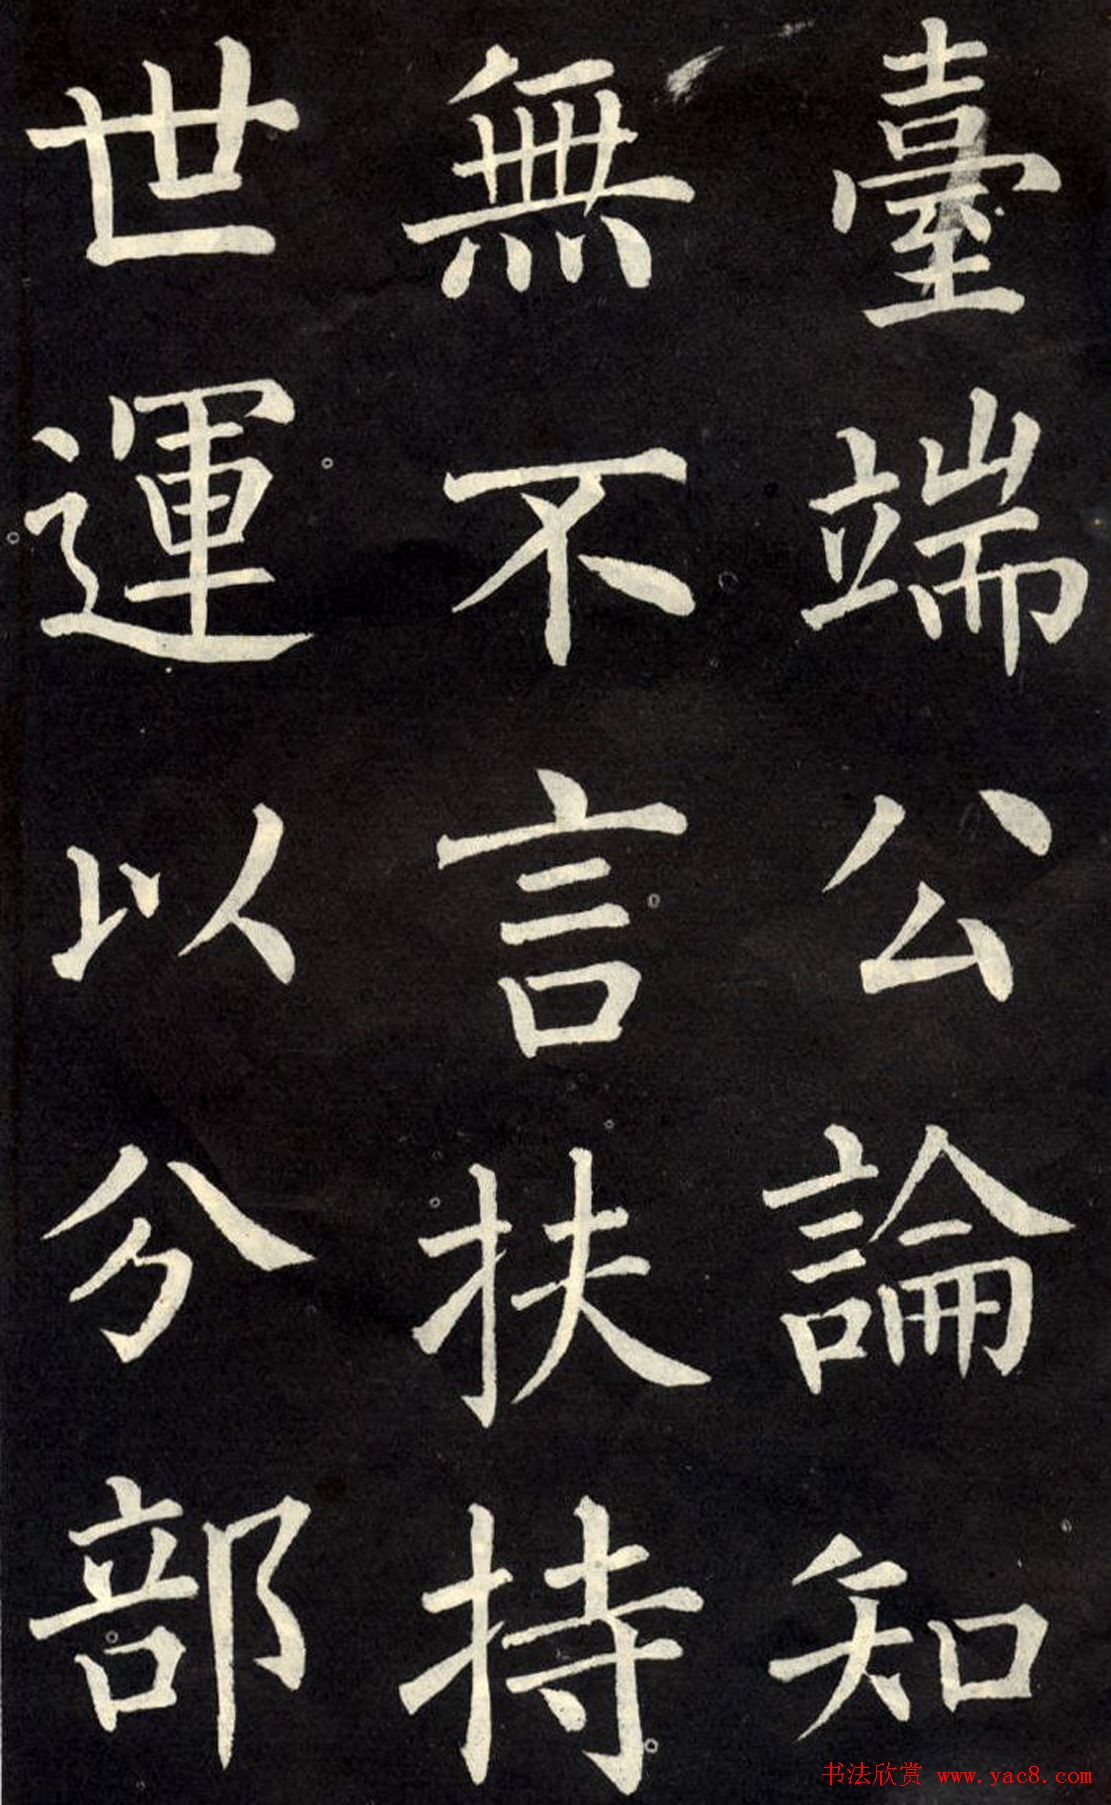 臺端公論知
無不言扶持
世運以分部
书法欣赏 www.yac8.com